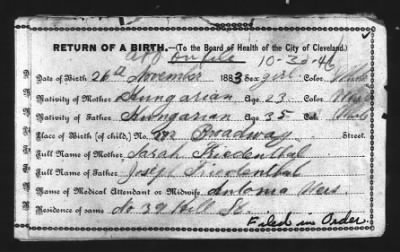 RETURN OF A BIRTH.—(To the Board of Health of the City of Cleveland.)
on file 10-30-46
Date of Birth 26th November 1883 Sex girl Color White
Nativity of Mother Hungarian Age 23 Color White
Nativity of Father Hungarian Age 35 Col. White
Place of Birth (of child,) No. Broadway Street.
Full Name of Mother Sarah Friedenthal
Full Name of Father Joseph Friedenthal
Name of Medical Attendant or Midwife Antonia Weis
Residence of same No 39 Hill St.
Filed in Order